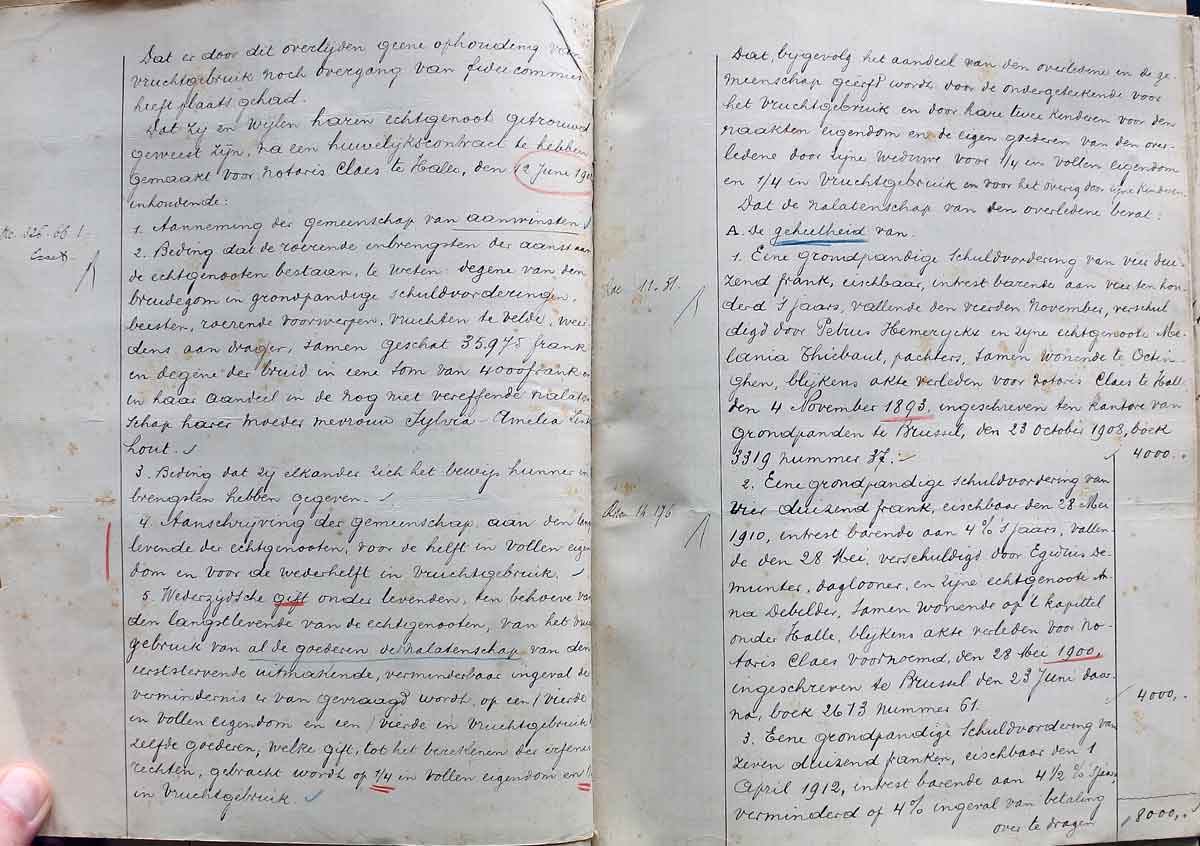 Dat er door dit overlijden geene ophouding van
vruchtgebruik noch overgang van fidei commis
heeft plaats gehad.
Dat zij en wijlen haren echtgenoot getrouwd
geweest zijn, na een huwelijkscontract te hebben
gemaakt voor notaris Claes te Halle, den 12 Juni
inhoudende:
1. Aanneming der gemeenschap van aanwinsten
2. Beding dat de roerende inbrengsten der aanstaan
de echtgenooten bestaan, te weten: degene van den
breudegom in grondpandige schuldvorderingen,
beesten, roerende voorwerpen, vruchten te velde, wei
dens aan drager, samen geschat 35.975 frank
en degene der bruid in eene som van 4000 frank
in haar aandeel in de nog niet vereffende nalaten
schap harer moeder mevrouw Sylvia-Amelia
hout.
3. Beding dat zij elkander zich het bewijs hunner in
brengsten hebben gegeven.
4. Aanschrijving der gemeenschap, aan den lang
levende der echtgenooten, voor de helft in vollen eigen
dom en voor de wederhelft in vruchtgebruik.
5. Wederzijdsche gift onder levenden, ten behoeve van
den langstlevende van de echtgenooten, van het vrucht
gebruik van al de goederen de nalatenschap van den
eerststervende uitmakende, verminderbaar ingeval de
vermindernis er van gevraagd wordt, op een vierde
in vollen eigendom en een vierde in vruchtgebruik
zelfde goederen, welke gift, tot het berekenen der erfenis
rechten, gebracht wordt op 1/4 in vollen eigendom en
in vruchtgebruik.
Dat, bijgevolg het aandeel van den overledene in de ge
meenschap geërfd wordt door de ondergeteekende voor
het vruchtgebruik en door hare twee kinderen voor den
naakten eigendom en de eigen goederen van den over-
ledene door zijne weduwe voor 1/4 in vollen eigendom
en 1/4 in vruchtgebruik en voor het overig door zijne kinderen
Dat de nalatenschap van den overledene bevat:
A. De geheelheid van.
1. Eene grondpandige schuldvordering van vier dui-
zend frank, eischbaar, intrest barende aan vier ten hon-
derd 's jaars, vallende den vierden November, verschul
digd door Petrus Hemeryckx en zijne echtgenoote Me-
lania Thiebaut, pachters, samen wonende te Oetin-
ghen, blijkens akte verleden voor notaris Claes te Hall
den 4 November 1893, ingeschreven ten kantore van
grondpanden te Brussel, den 23 October 1908, boek
3319 nummer 37.
4000..
2. Eene grondpandige schuldvordering van
vier duizend frank, eischbaar den 28 Mei
1910, intrest barende aan 4% 's jaars, vallen
de den 28 Mei verschuldigd door Egidius De-
munter, daglooner, en zijne echtgenoote An-
na Debelder, samen wonende op 't kapittel
onder Halle, blijkens akte verleden voor no-
taris Claes voornoemd, den 28 Mei 1900,
ingeschreven te Brussel den 23 Juni daar-
na, boek 2673 nummer 61.
4000,.
3. Eene grondpandige schuldvordering van
zeven duizend franken, eischbaar den 1
April 1912, intrest barende aan 4 1/2 % 's jaars
verminderd op 4% ingeval van betaling
over te dragen
8000,.